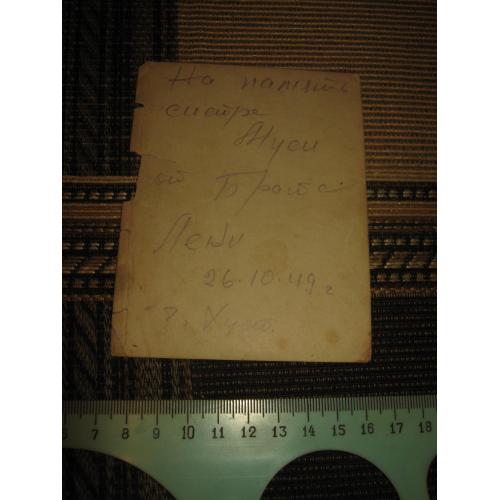 На память
сестре
Муси
от Брата
Лёни
26.10.49 г
г. Хуст.
6 7 8 9 10 11 12 13 14 15 16 17 18